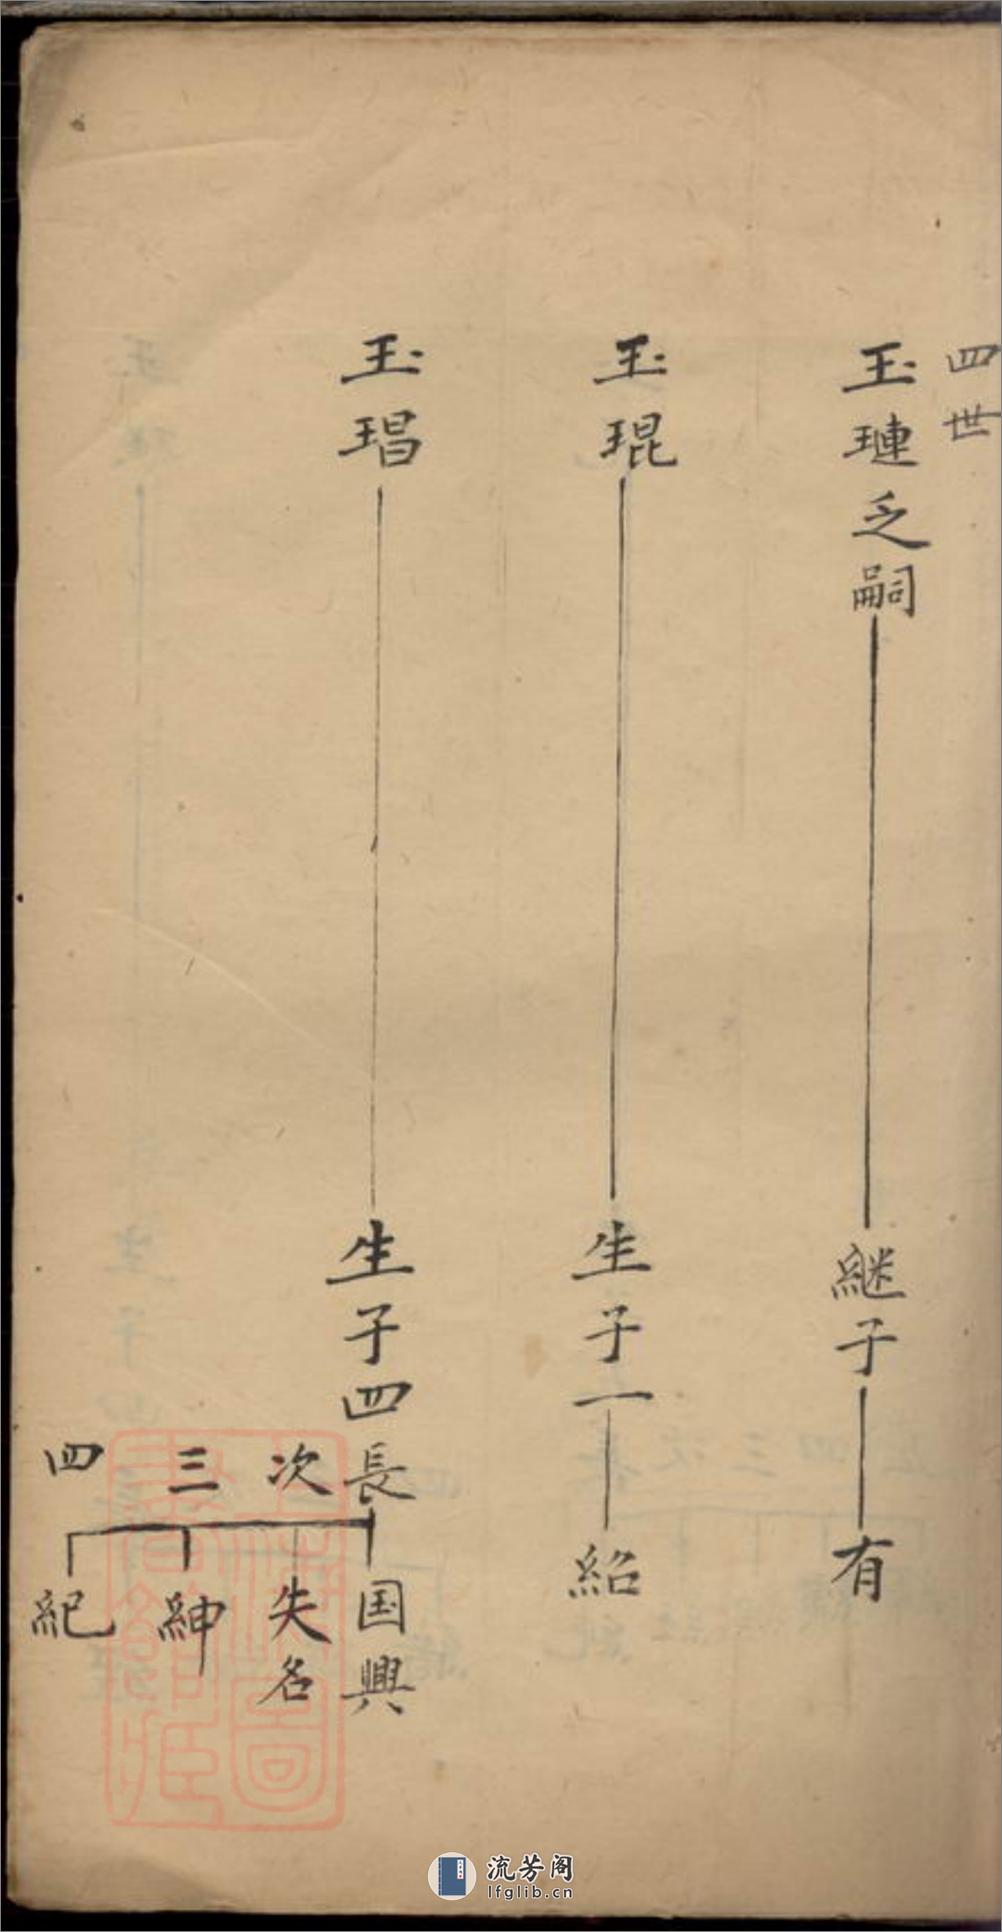 四世
玉璉乏嗣
継子
有
玉琨
生子一
紹
玉琩
生子四
長
国興
次
失名
三
紳
四
紀
流芳阁
lfglib.cn